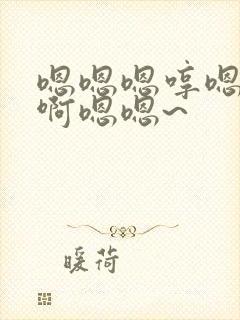 嗯嗯嗯哼嗯
啊嗯嗯~
暖荷